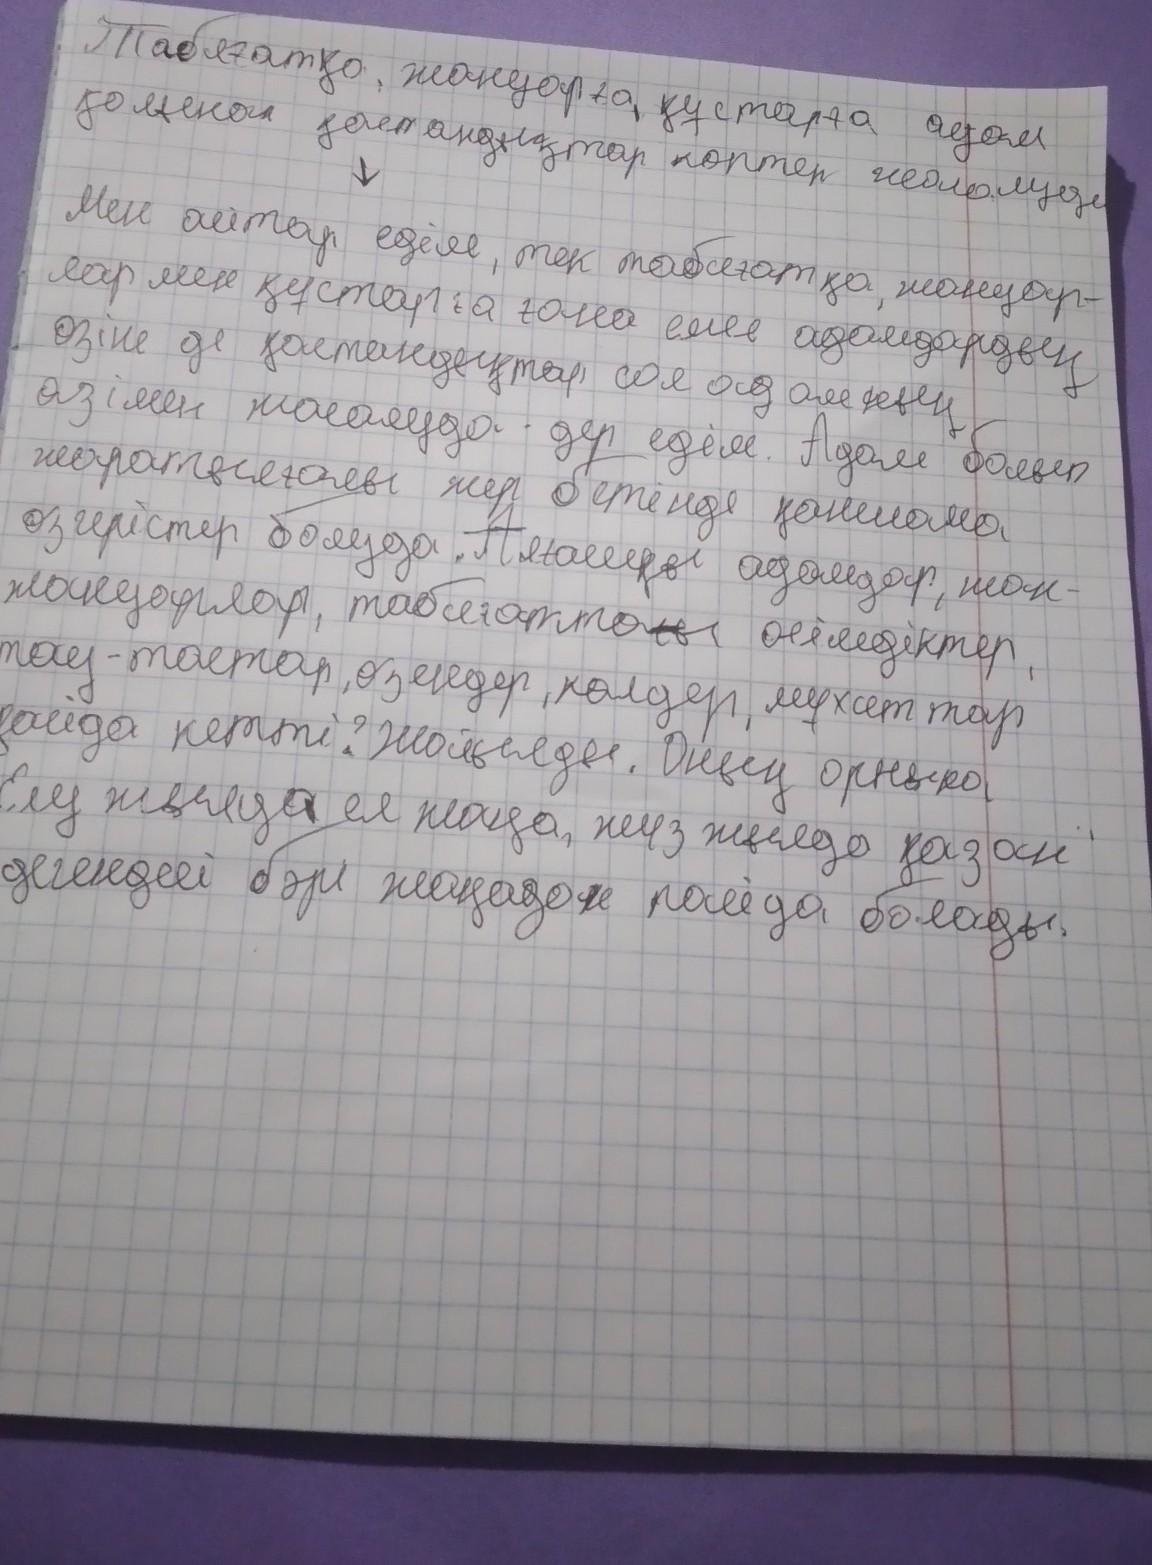 Табиғатқа, жануарға, құстарға адам
қолынан қастандықтар көптеп жасалуда
↓
Мен айтар едім, тек табиғатқа, жануар-
лар мен құстарға ғана емес адамдардың
өзіне де қастандықтар сол адамның
өзімен жасалуда дер едім. Адам болып
жаратылғалы жер бетінде қаншама
өзгерістер болуда. Алғашқы адамдар, жан-
жануарлар, табиғаттағы өсімдіктер,
тау-тастар, өзендер, көлдер, мұхиттар
қайда кетті? Жойылды. Оның орнына
Елу жылда ел жаңа, жүз жылда қазан"
дегендей бәрі жаңадан пайда болады.